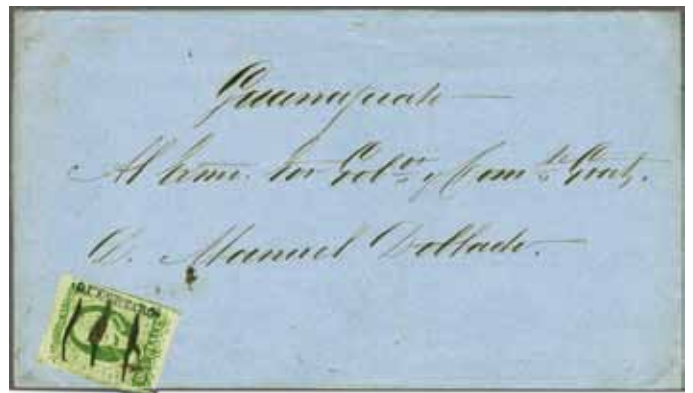 Guanajuato
Al Exmo. Sor Gob.or y Com.te Gral.
D. Manuel Doblado.
QUERETARO